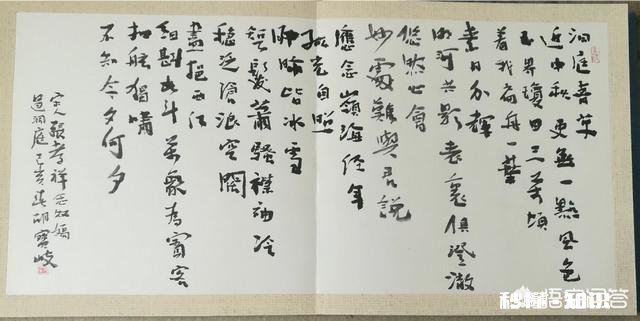 洞庭青草
近中秋更無一點風色
玉界瓊田三萬頃
着我扁舟一葉
素月分輝
明河共影表裏俱澄澈
悠然心會
妙處難與君說
應念嶺海經年
孤光自照
肝肺皆冰雪
短髮蕭騷襟袖冷
穩泛滄浪空闊
盡挹西江
細斟北斗萬象為賓客
扣舷獨嘯
不知今夕何夕
宋人張孝祥念奴嬌
過洞庭己亥春胡寶岐
悟空问答